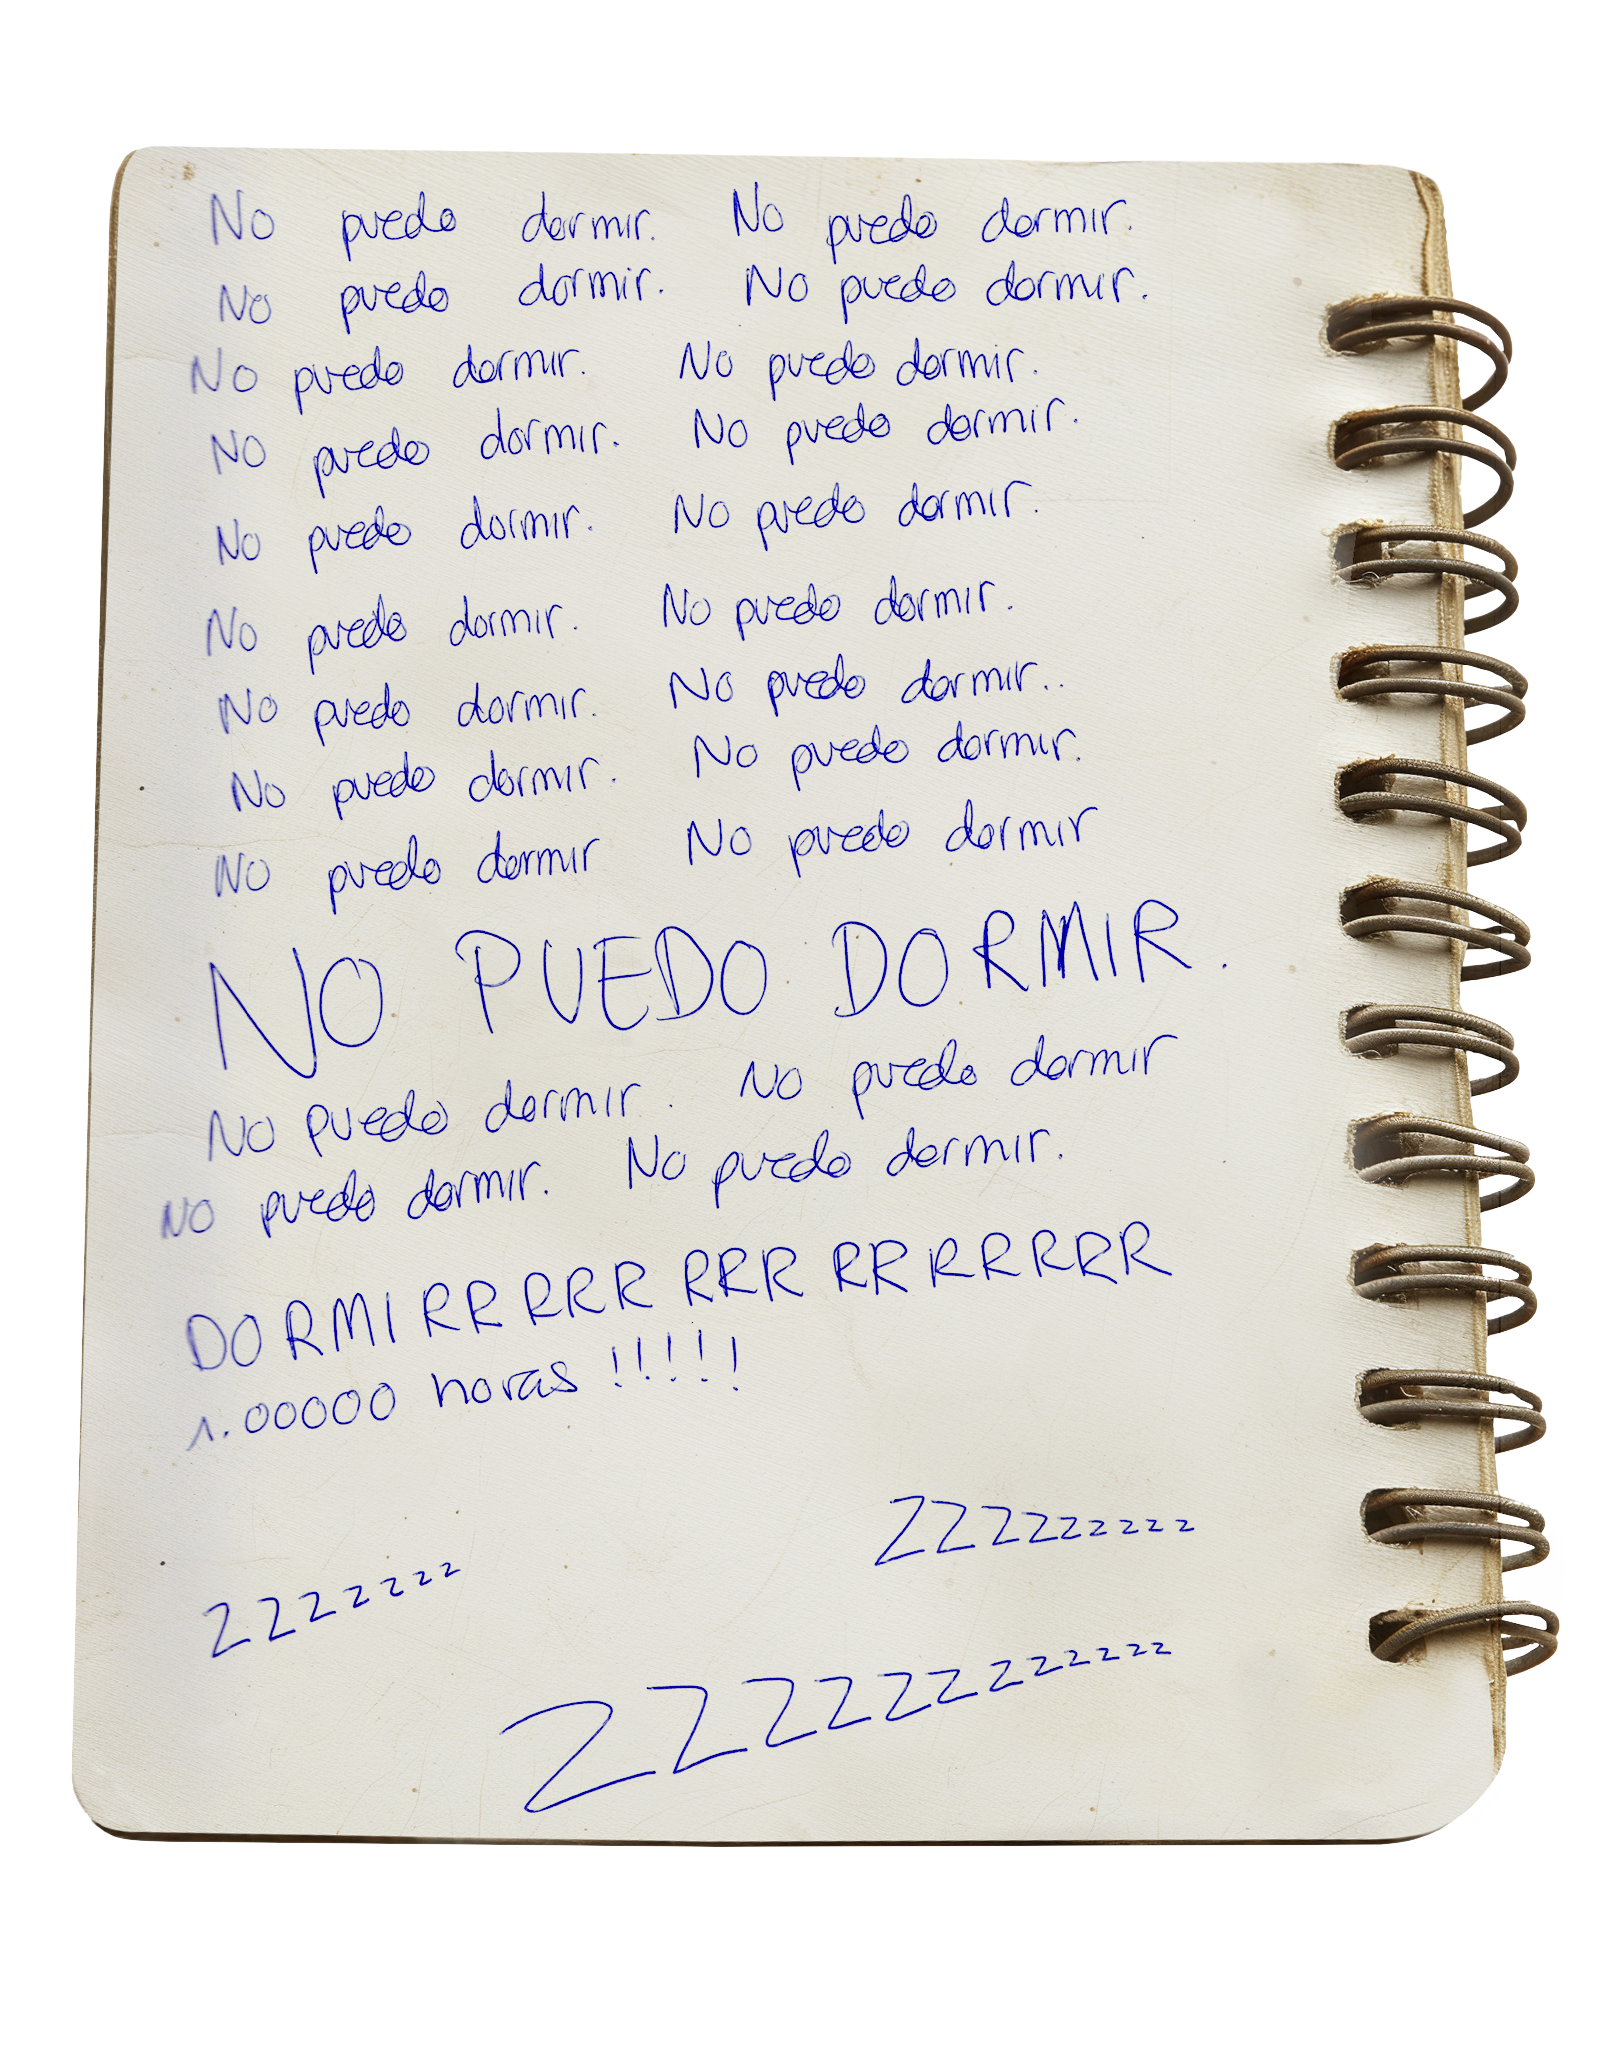 No puedo dormir. No puedo dormir.
No puedo dormir. No puedo dormir.
No puedo dormir. No puedo dormir.
No puedo dormir. No puedo dormir.
No puedo dormir. No puedo dormir.
No puedo dormir. No puedo dormir.
No puedo dormir. No puedo dormir..
No puedo dormir. No puedo dormir.
No puedo dormir No puedo dormir
NO PUEDO DORMIR.
No puedo dormir. No puedo dormir
No puedo dormir. No puedo dormir.
DORMIRRRRRRRRRRRRRRR
1.00000 horas !!!!!
zzzzzzzzz
zzzzzzzz
zzzzzzzzzzzz